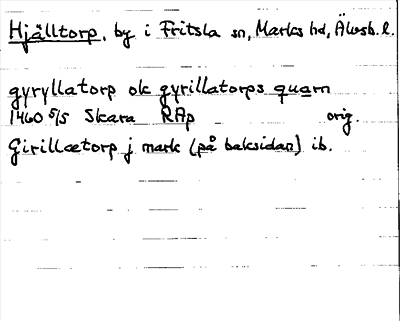 Hjälltorp, by i Fritsla sn, Marks hd, Älvsb. l.
gyryllatorp ok gyrillatorps quarn
1460 5/5 Skara RAp orig.
Girillætorp j mark (på baksidan) ib.